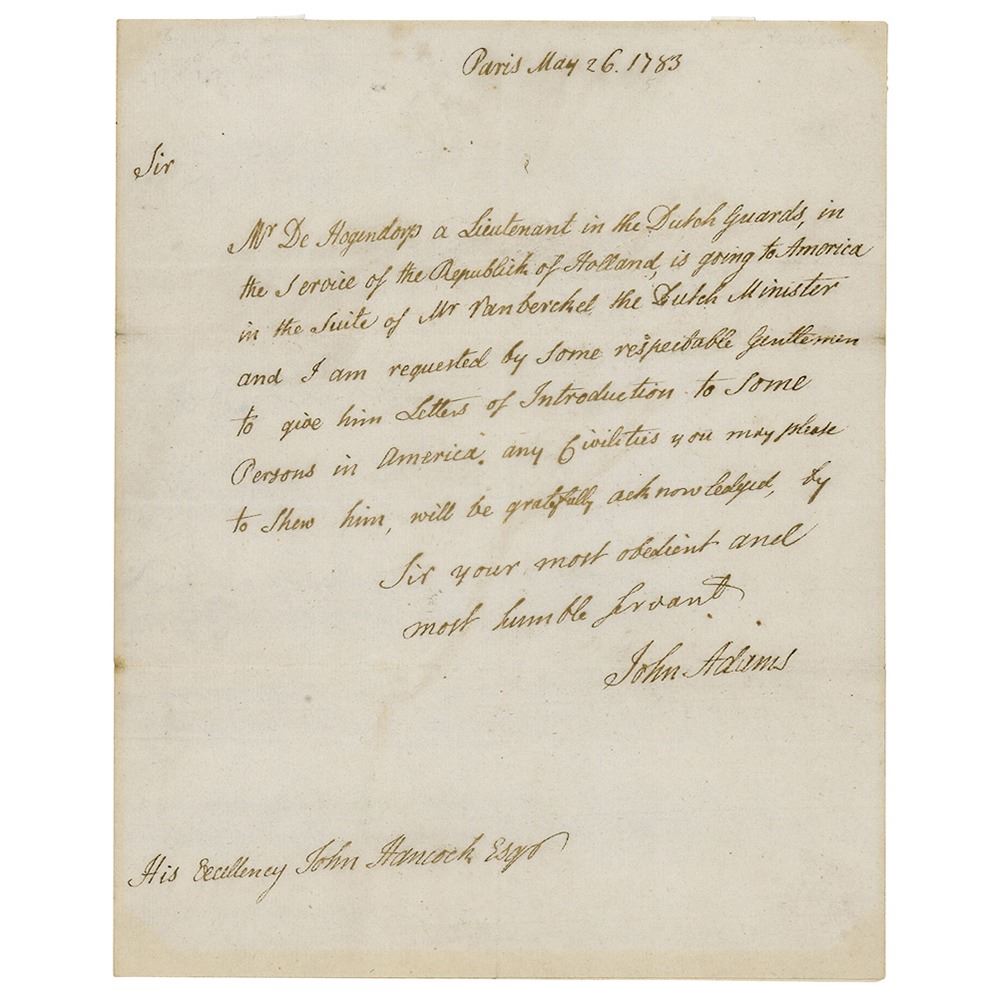 Paris May 26. 1783
Sir
Mr De Hogendorp a Lieutenant in the Dutch Guards, in
the Service of the Republick of Holland, is going to America
in the Suite of Mr Vanberchel the Dutch Minister
and I am requested by some respectable Gentlemen
to give him Letters of Introduction to some
Persons in America. any Civilities you may please
to Shew him, will be gratefully acknowledged, by
Sir your most obedient and
most humble servant
John Adams
His Excellency John Hancock Esqr